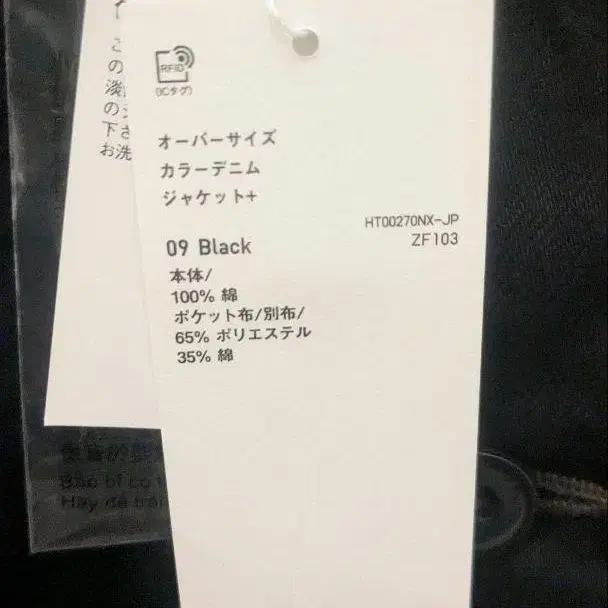 RFID
(ICタグ)
オーバーサイズ
カラーデニム
ジャケット+
HT00270NX-JP
ZF103
09 Black
本体/
100% 綿
ポケット布/別布/
65% ポリエステル
35% 綿
この
淡
の
下さ
お洗
Bao bì có
Hãy để